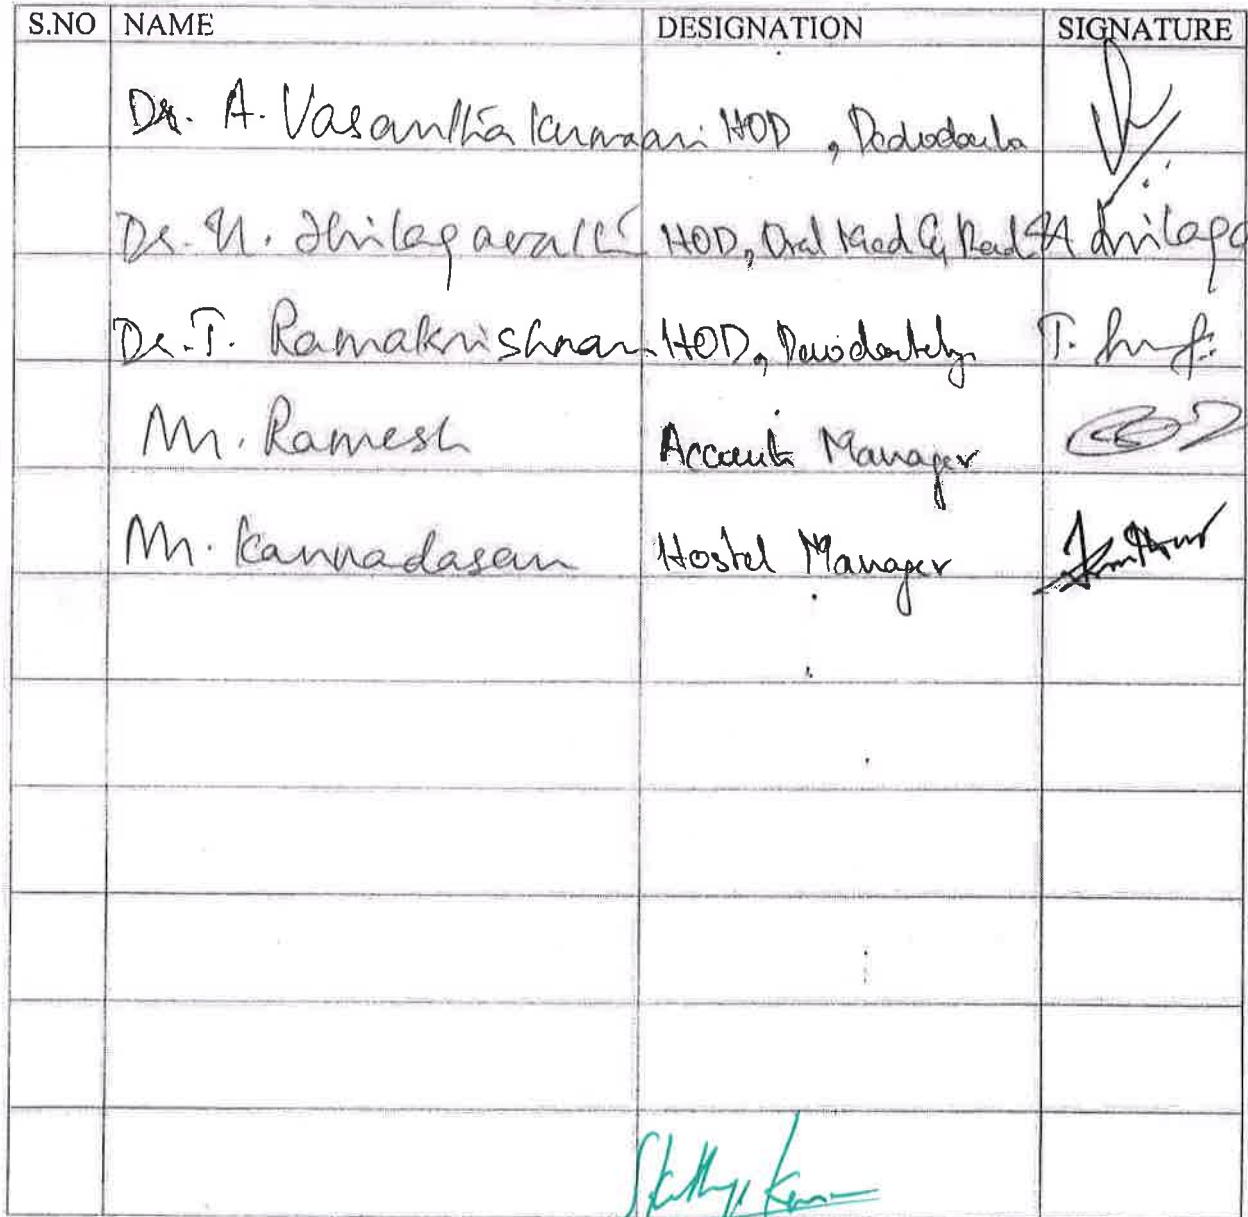 S.NO NAME DESIGNATION SIGNATURE
Dr. A. Vasanthakumari HOD, Pedodontia
Dr. N. Thilagavathi HOD, Oral Med & Rad N. Thilaga
Dr. T. Ramakrishnan HOD, Periodontology T.
Mr. Ramesh Accounts Manager
Mr. Kannadasan Hostel Manager